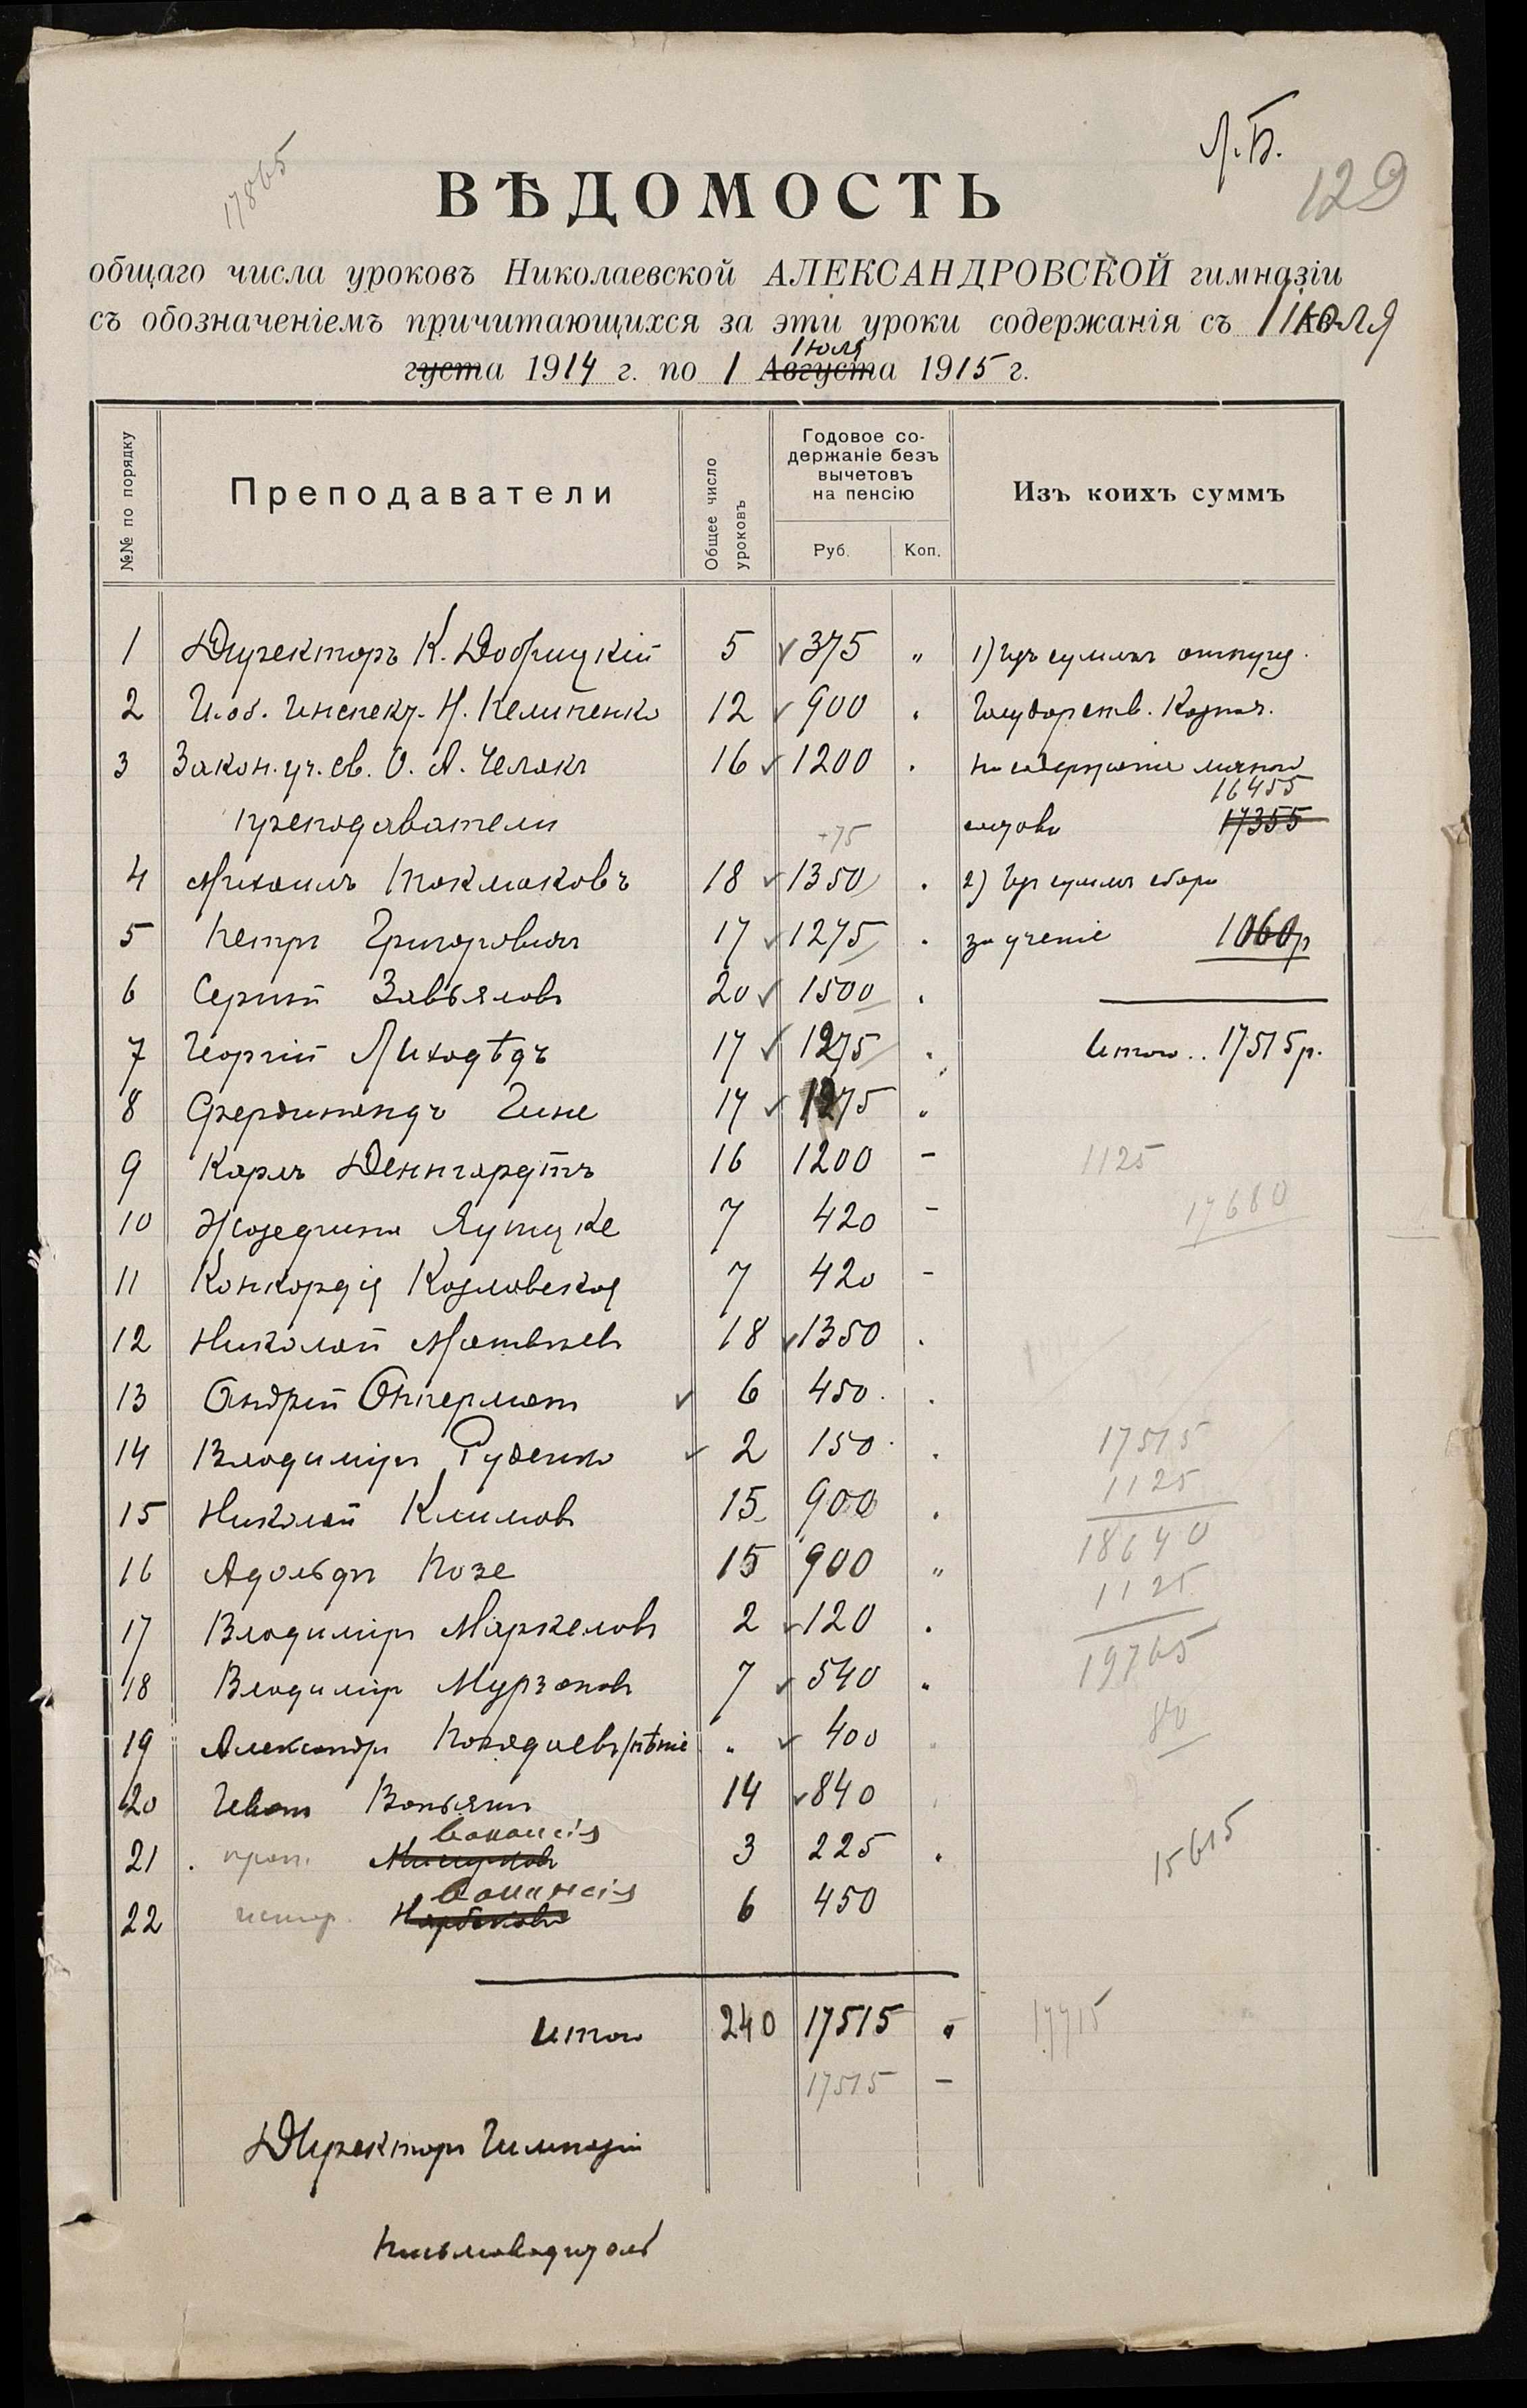 Л.Б.
129
17865
ВѢДОМОСТЬ
общаго числа уроковъ Николаевской АЛЕКСАНДРОВСКОЙ гимназіи
съ обозначеніемъ причитающихся за эти уроки содержанія съ 1 Іюля
Іюля
густа 1914 г. по 1 Августа 1915 г.
№№ по порядку
Преподаватели
Общее число уроковъ
Годовое со-
держаніе безъ
вычетовъ
на пенсію
Руб.
Коп.
Изъ коихъ суммъ
1 Директоръ К. Добрицкій 5 375 „ 1) Изъ суммъ отпущ.
2 И. об. Инспект. Н. 12 900 . Государств. Казнач.
3 Закон. уч. св. О. А. Челакъ 16 1200 . на содержаніе личнаго
16455
преподаватели состава 17355
+75
4 Михаилъ Токмаковъ 18 1350 . 2) Изъ суммъ сбора
5 Петръ Григоровичъ 17 1275 . за ученіе 1060р
6 Сергѣй Завьяловъ 20 1500 .
7 Георгій Лиходѣдъ 17 1275 . Итого .. 17515 р.
8 Фердинандъ Гине 17 1275 .
9 Карлъ Деннгардтъ 16 1200 – 1125
10 Жозефина Яутцке 7 420 – 17680
11 Конкордія Козловская 7 420 –
12 Николай Матвѣевъ 18 1350 .
13 Андрей Оккерманъ 6 450 .
14 Владиміръ Руденко 2 150 . 17515
15 Николай Климовъ 15 900 . 1125
18640
16 Адольфъ Козе 15 900 „ 1125
17 Владиміръ Маркеловъ 2 120 . 19765
18 Владиміръ Мурзановъ 7 540 „ 80
19 Александръ пѣніе „ 400
20 Иванъ 14 840
вакансія
21 . 3 225 . 15615
вакансія
22 6 450
Итого 240 17515 „ 17715
17515 –
Директоръ Гимназіи
Письмоводитель